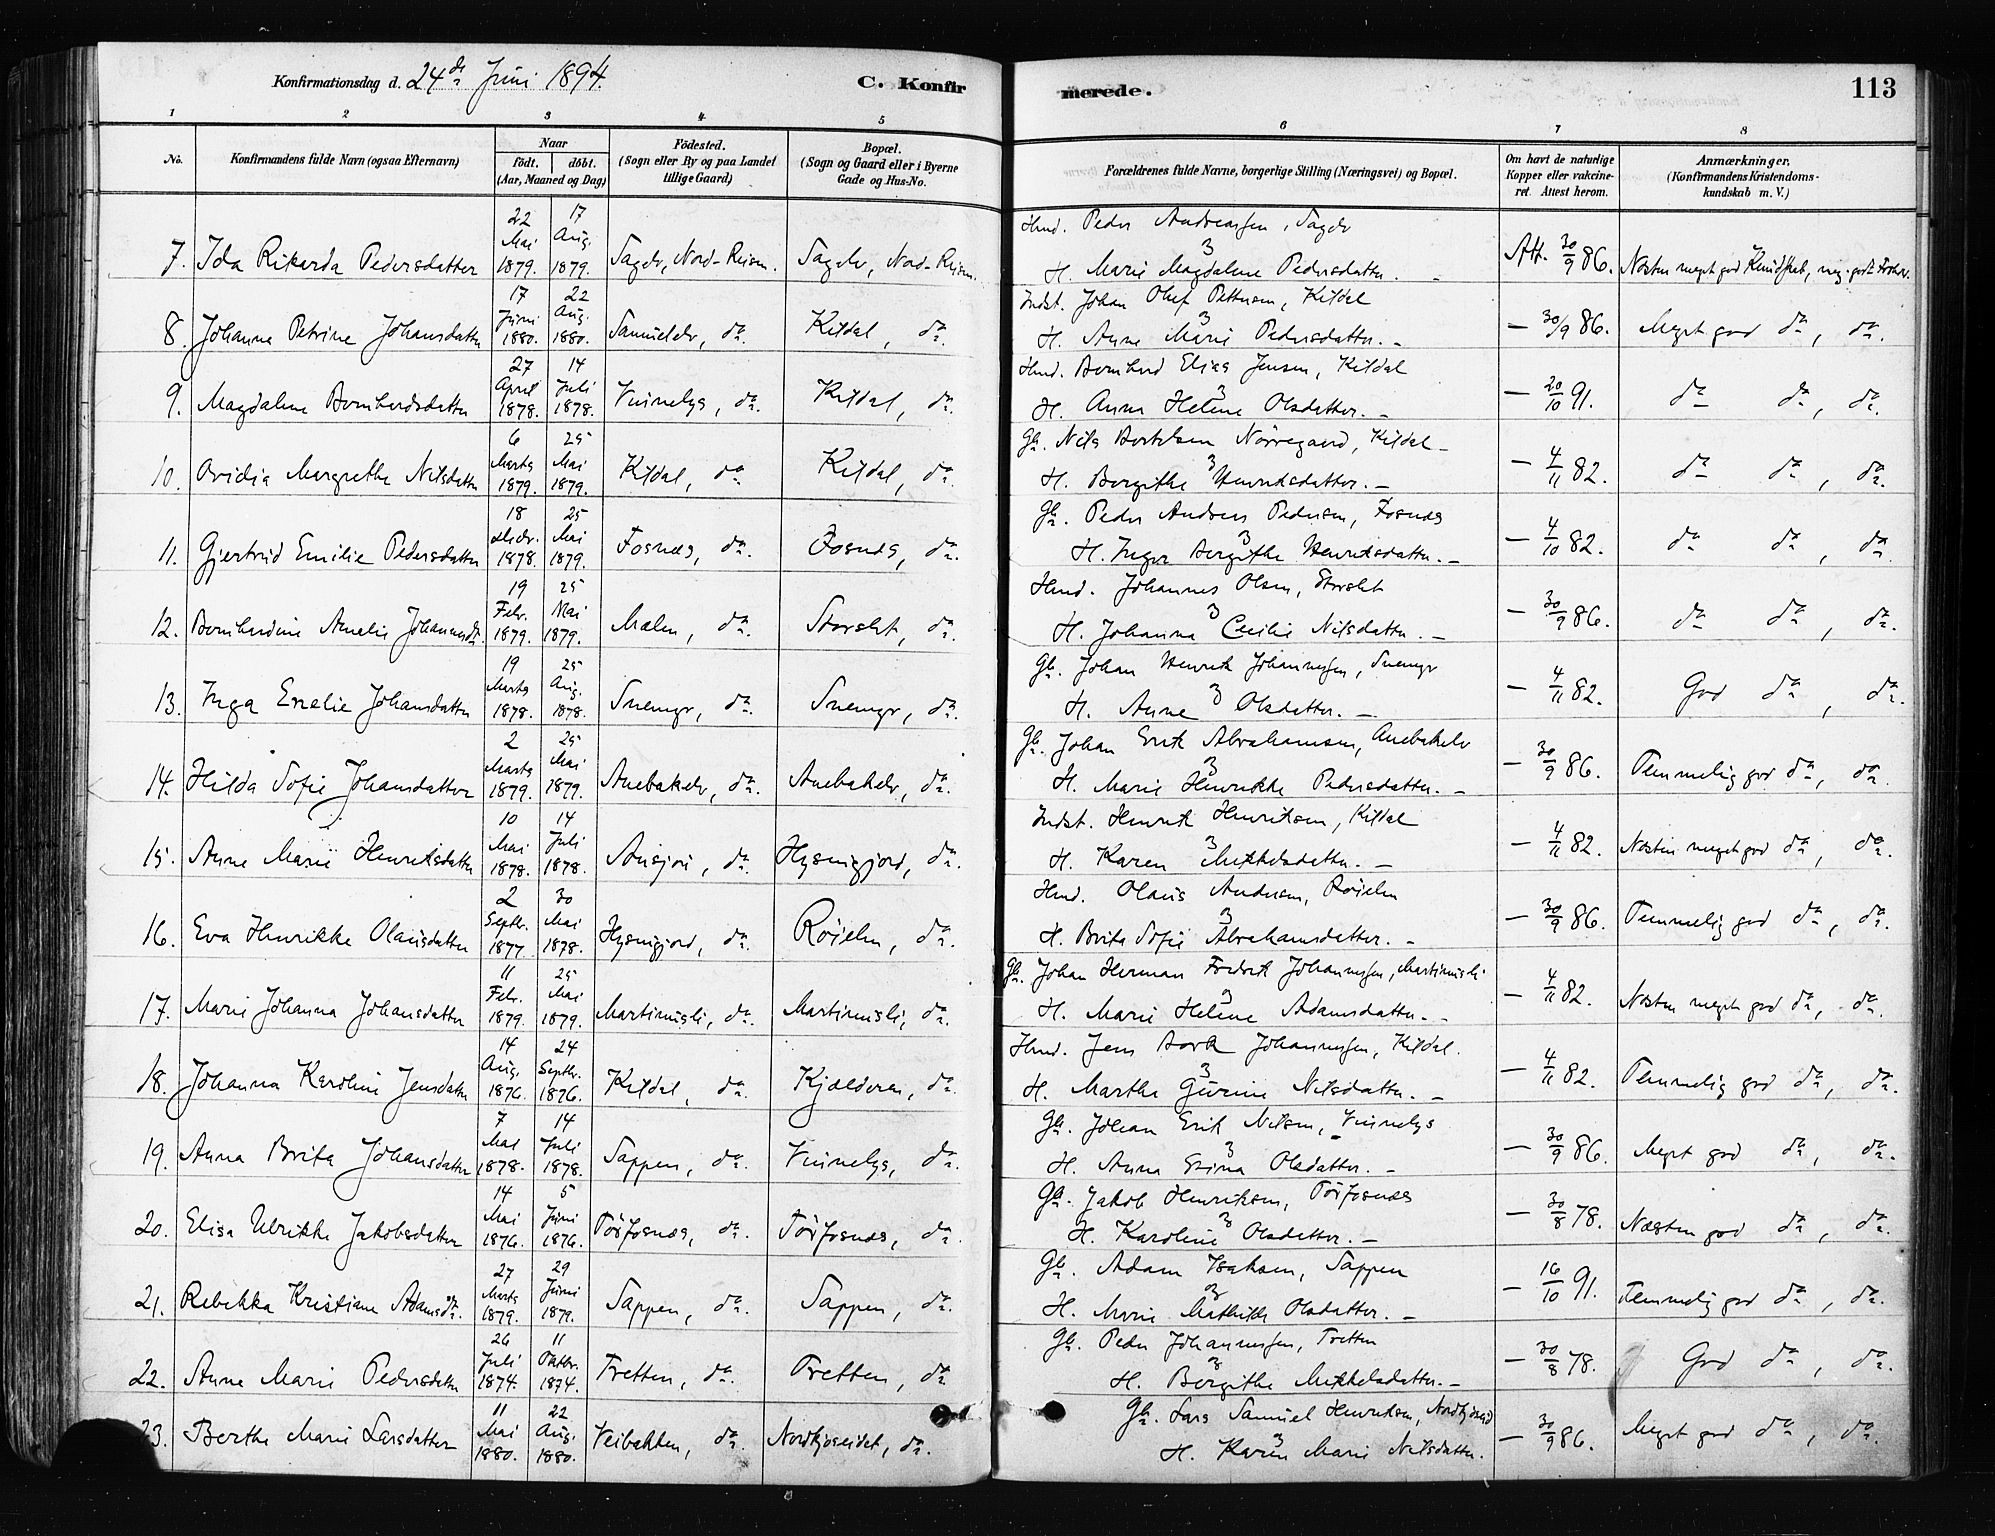 Konfirmationsdag d. 24de Juni 1894.
C. Konfirmerede.
113
1 2 3 4 5 6 7 8
No.
Konfirmandens fulde Navn (ogsaa Efternavn)
Naar
födt. döbt.
(Aar, Maaned og Dag)
Födested.
(Sogn eller By og paa Landet
tillige Gaard)
Bopæl.
(Sogn og Gaard eller i Byerne
Gade og Hus-No.
Forældrenes fulde Navne, borgerlige Stilling (Næringsvei) og Bopæl.
Om havt de naturlige
Kopper eller vakcine-
ret. Attest herom.
Anmærkninger.
(Konfirmandens Kristendoms-
kundskab m. V.)
7. Ida Rikarda Pedersdatter 22 Mai 1879. 17 Aug. 1879. Sagelv, Nord-Reisen. Sagelv, Nord-Reisen.
Hmd. Peder Andreassen, Sagelv
H. Marie Magdalene Pedersdatter. - Att. 30/9 86. Næsten meget god Kundskab, meg. godt Forhold.
8. Johanna Petrine Johansdatter 17 Juni 1880. 22 Aug. 1880. Samuelelv, do. Kildal, do.
Indst. Johan Oluf Pettersen, Kildal
H. Anne Marie Pedersdatter. - — 30/9 86. Meget god do, do.
9. Magdalene Bernhardsdatter 27 April 1878. 14 Juli 1878. Vinnelys, do. Kildal, do.
Hmd. Bernhard Elias Jensen, Kildal
H. Anna Helene Olsdatter. - — 20/10 91. do do, do.
10. Ovidia Margrethe Nilsdatter 6 Marts 1879. 25 Mai 1879. Kildal, do Kildal, do.
Gb. Nils Bertelsen Nörregaard, Kildal
H. Bergithe Henriksdatter. - — 4/11 82. do do, do.
11. Gjertrud Emilie Pedersdatter 18 Decbr. 1878. 25 Mai 1879. Fosnæs, do. Fosnæs, do.
Gb. Peder Andreas Pedersen, Fosnæs
H. Inger Bergithe Henriksdatter. - — 4/10 82. do do, do.
12. Bernhardine Amalie Johannesdt. 19 Febr. 1879. 25 Mai 1879. Mælen, do. Storslet, do.
Hmd. Johannes Olsen, Storslet
H. Johanna Cecilie Nilsdatter. - — 30/9 86. do do, do.
13. Inga Enelie Johansdatter 19 Marts 1878. 25 Aug. 1878. Snemyr, do. Snemyr, do.
Gb. Johan Henrik Johannessen, Snemyr
H. Anne Olsdatter. - — 4/11 82. God do, do.
14. Hilda Sofie Johansdatter 2 Marts 1879. 25 Mai 1879. Anebakelv, do. Anebakelv, do.
Gb. Johan Erik Abrahamsen, Anebakelv
H. Marie Henrikke Pedersdatter. - — 30/9 86. Temmelig god do, do.
15. Anne Marie Henriksdatter 10 Mai 1878. 14 Juli 1878. , do. Hysingjord, do.
Indst. Henrik Henriksen, Kildal
H. Karen Mikkelsdatter. - — 4/11 82. Næsten meget god do, do.
16. Eva Henrikke Olausdatter 2 Septbr. 1877 30 Mai 1878. Hysingjord, do. Röielen, do.
Hmd. Olaus Andersen, Röielen
H. Brita Sofie Abrahamsdatter. - — 30/9 86. Temmelig god do, do.
17. Marie Johanna Johansdatter 11 Febr. 1879. 25 Mai 1879. Martinusli, do. Martinusli, do.
Gb. Johan Herman Fredrik Johannessen, Martinusli
H. Marie Helene Adamsdatter. - — 4/11 82. Næsten meget god do, do.
18. Johanna Karoline Jensdatter 14 Aug. 1876. 24 Septbr. 1876. Kildal, do. Kjælderen, do.
Hmd. Jens Bark Johannessen, Kildal.
H. Marthe Gurine Nilsdatter. - — 4/11 82. Temmelig god do, do.
19. Anna Brita Johansdatter 7 Mai 1878. 14 Juli 1878. Sappen, do. Vinnelys, do.
Gb. Johan Erik Nilsen, Vinnelys
H. Anna Stina Olsdatter. - — 30/9 86. Meget god do, do.
20. Elisa Ulrikke Jakobsdatter 14 Mai 1876. 5 Juni 1876. Törfosnæs, do. Törfosnæs, do.
Gb. Jakob Henriksen, Törfosnæs
H. Karoline Olsdatter. - — 30/8 78. Næsten god do, do.
21. Rebekka Kristiane Adamsdr. 27 Marts 1879. 29 Juni 1879. Sappen, do. Sappen, do.
Gb. Adam Isaksen, Sappen
H. Marie Mathilde Olsdatter. - — 16/10 91. Temmelig god do, do.
22. Anne Marie Pedersdatter 26 Juli 1874. 11 Oktbr. 1874. Tretten, do. Tretten, do.
Gb. Peder Johannessen, Tretten
H. Bergithe Mikkelsdatter. - — 30/8 78. God do, do.
23. Berthe Marie Larsdatter 11 Mai 1880. 22 Aug. 1880. Veibakken, do. Nordkjoseidet, do.
Gb. Lars Samuel Henriksen, Nordkjoseid
H. Karen Marie Nilsdatter. — 30/9 86. Meget god do, do.